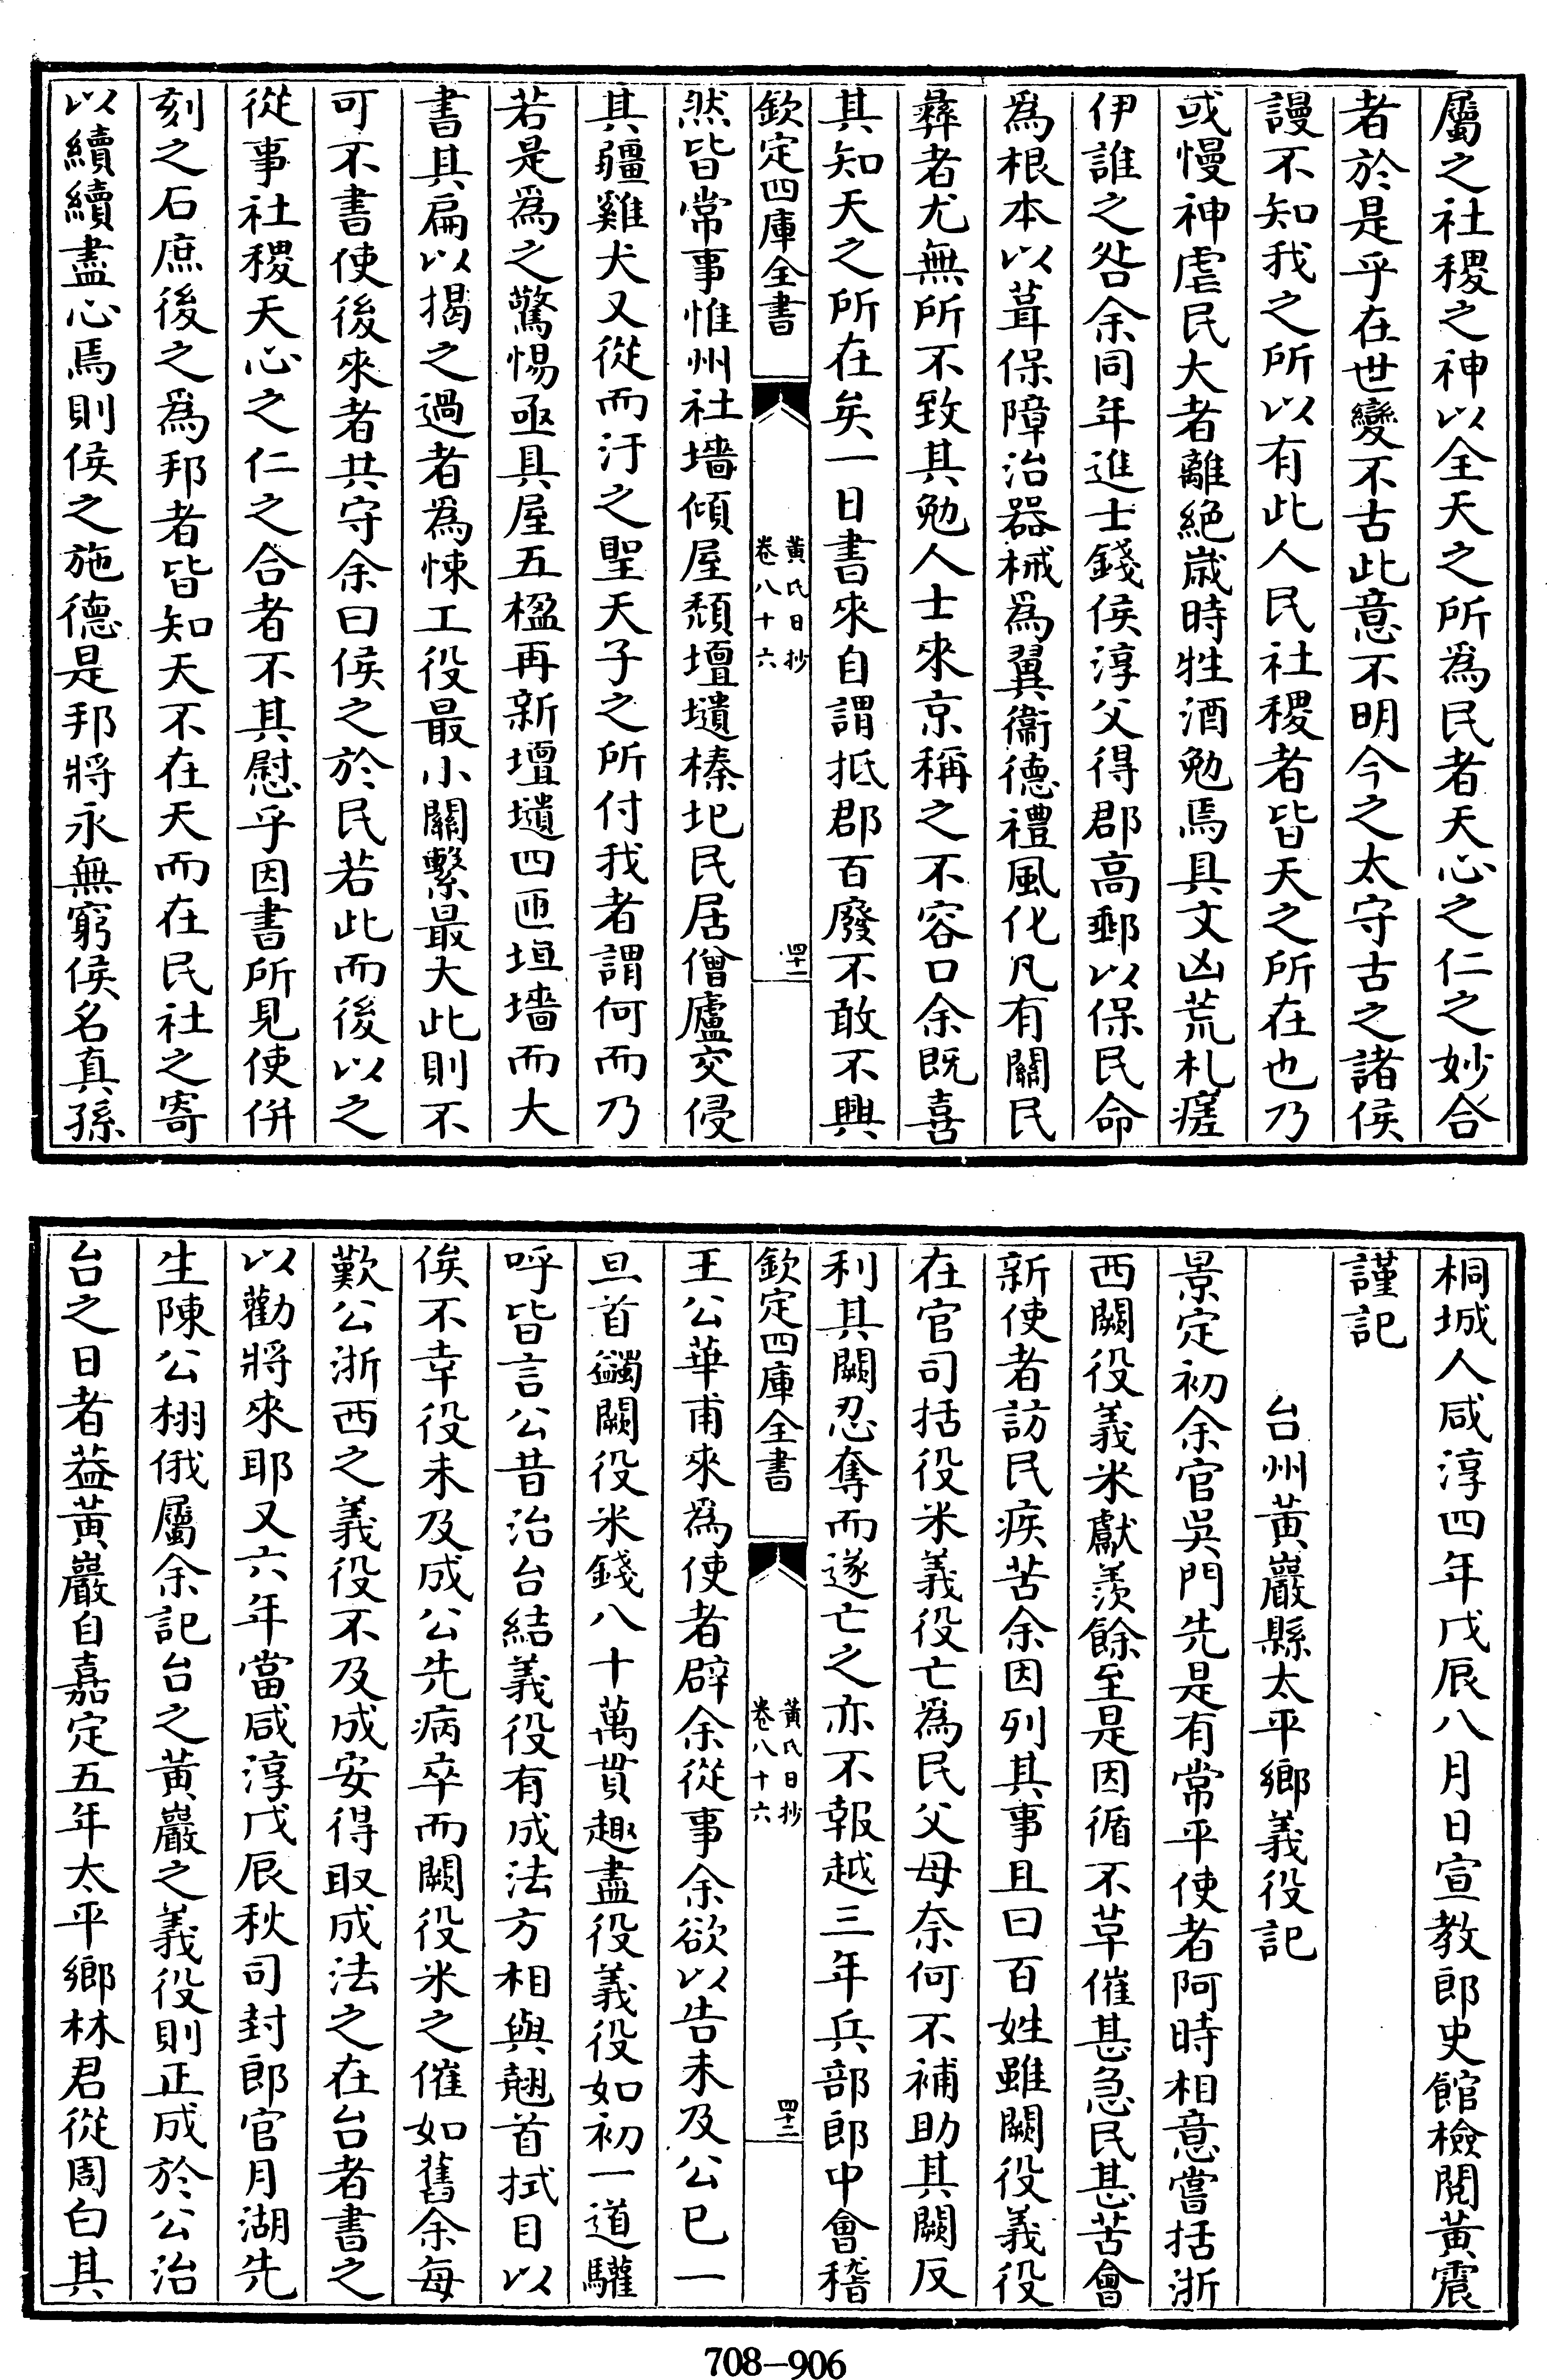 屬之社稷之神以全天之所爲民者天心之仁之妙合
者於是乎在世變不古此意不明今之太守古之諸侯
謾不知我之所以有此人民社稷者皆天之所在也乃
或慢神虐民大者離絶歲時牲酒勉焉具文凶荒札瘥
伊誰之咎余同年進士錢侯淳父得郡高郵以保民命
爲根本以葺保障治器械爲翼衞德禮風化凡有關民
彝者尤無所不致其勉人士來京稱之不容口余既喜
其知天之所在矣一日書來自謂抵郡百廢不敢不興
欽定四庫全書
黃氏日抄
卷八十六
四十二
然皆常事惟州社墻傾屋頹壇壝榛圮民居僧廬交侵
其疆雞犬又從而汙之聖天子之所付我者謂何而乃
若是爲之驚惕亟具屋五楹再新壇壝四匝垣墻而大
書其扁以揭之過者爲悚工役最小關繫最大此則不
可不書使後來者共守余曰侯之於民若此而後以之
從事社稷天心之仁之合者不其慰乎因書所見使併
刻之石庶後之爲邦者皆知天不在天而在民社之寄
以續續盡心焉則侯之施德是邦將永無窮侯名真孫
桐城人咸淳四年戊辰八月日宣教郎史館檢閱黃震
謹記
台州黃巖縣太平鄉義役記
景定初余官吳門先是有常平使者阿時相意嘗括浙
西闕役義米獻羨餘至是因循不草催甚急民甚苦會
新使者訪民疾苦余因列其事且曰百姓雖闕役義役
在官司括役米義役亡爲民父母奈何不補助其闕反
利其闕忍奪而遂亡之亦不報越三年兵部郎中會稽
欽定四庫全書
黃氏日抄
卷八十六
四十三
王公華甫來爲使者辟余從事余欲以告未及公已一
旦首蠲闕役米錢八十萬貫趣盡役義役如初一道驩
呼皆言公昔治台結義役有成法方相與翹首拭目以
俟不幸役未及成公先病卒而闕役米之催如舊余每
歎公浙西之義役不及成安得取成法之在台者書之
以勸將來耶又六年當咸淳戊辰秋司封郎官月湖先
生陳公栩俄屬余記台之黃巖之義役則正成於公治
台之日者葢黃巖自嘉定五年太平鄉林君從周白其
708—906